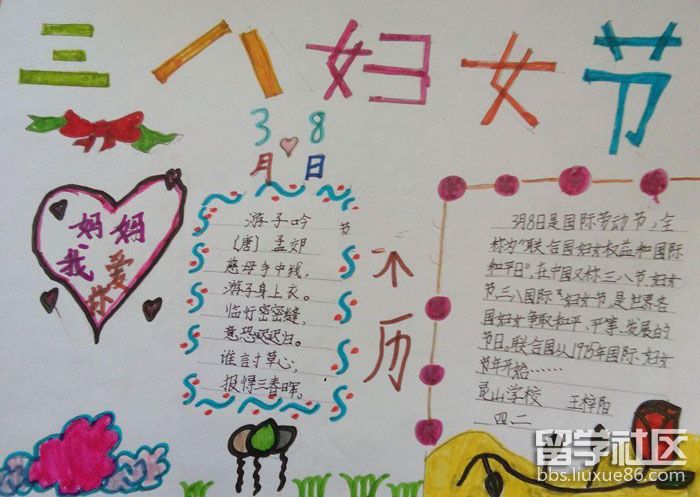 三八妇女节
3 8
月 日
妈妈
我爱
你
游子吟
(唐)孟郊
慈母手中线,
游子身上衣。
临行密密缝,
意恐迟迟归。
谁言寸草心,
报得三春晖。
节
历
3月8日是国际劳动节,全
称为"联合国妇女权益和国际
和平日"。在中国又称三八节、妇女
节、三八国际妇女节,是世界各
国妇女争取和平、平等、发展的
节日。联合国从1975年国际妇女
节年开始……
昆山学校 王梓阳
四二
留学社区
bbs.liuxue86.com